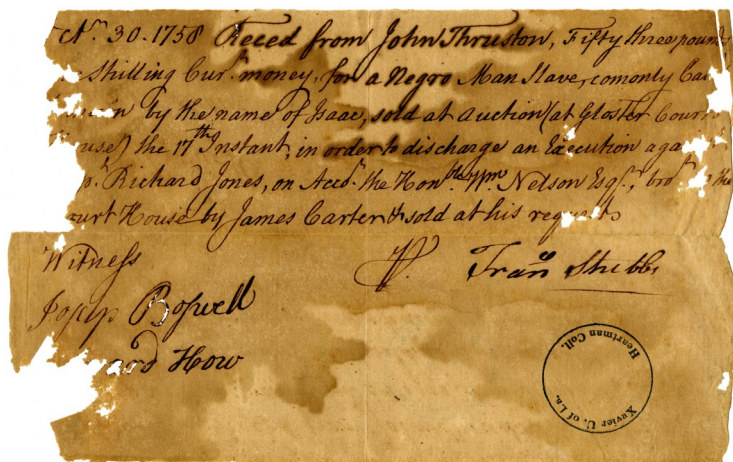 30. 1758 Reced from John Thruston, Fifty three pound
Shilling Curt. money, for a Negro Man Slave, comonly Ca
by the name of Isaac, sold at Auction (at Gloster Court
House) the 17th Instant, in order to discharge an Execution again
Richard Jones, on Acct. the Honble. Wm. Nelson Esqr., brot. the
Court House by James Carter & sold at his request
Witness
Pr. Frans Stubbs
Boswell
How
Xavier U. of La.
Heartman Coll.